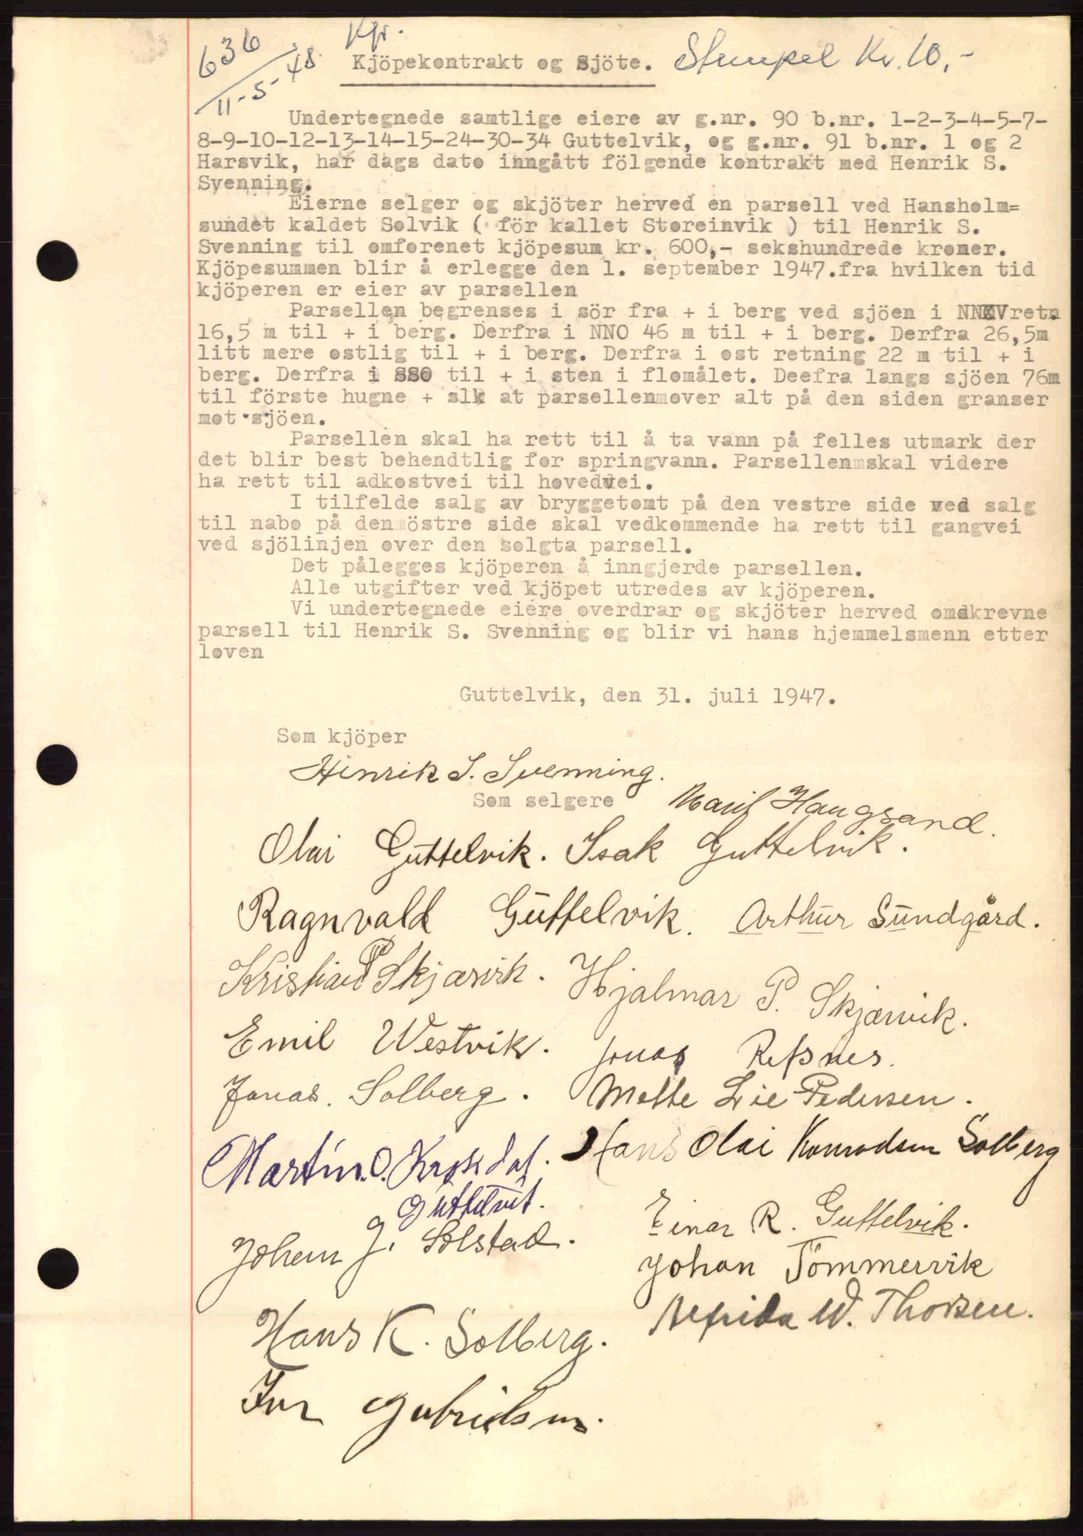 636
11-5-48
Kpr.
Kjöpekontrakt og Sjöte. Stempel Kr. 10,-
Undertegnede samtlige eiere av g.nr. 90 b.nr. 1-2-3-4-5-7-
8-9-10-12-13-14-15-24-30-34 Guttelvik, og g.nr. 91 b.nr. 1 og 2
Harsvik, har dags dato inngått fölgende kontrakt med Henrik S.
Svenning.
Eierne selger og skjöter herved en parsell ved Hansholm=
sundet kaldet Solvik ( för kallet Storeinvik ) til Henrik S.
Svenning til omforenet kjöpesum kr. 600,- sekshundrede kroner.
Kjöpesummen blir å erlegge den 1. september 1947.fra hvilken tid
kjöperen er eier av parsellen
Parsellen begrenses i sör fra + i berg ved sjöen i NNV retn
16,5 m til + i berg. Derfra i NNO 46 m til + i berg. Derfra 26,5m
litt mere ostlig til + i berg. Derfra i ost retning 22 m til + i
berg. Derfra i SSO til + i sten i flomålet. Deefra langs sjöen 76m
til förste hugne + slk at parsellenmover alt på den siden granser
mot sjöen.
Parsellen skal ha rett til å ta vann på felles utmark der
det blir best behendtlig for springvann. Parsellenmskal videre
ha rett til adkostvei til hovedvei.
I tilfelde salg av bryggetomt på den vestre side ved salg
til nabo på den östre side skal vedkommende ha rett til gangvei
ved sjölinjen over den solgta parsell.
Det pålegges kjöperen å inngjerde parsellen.
Alle utgifter ved kjöpet utredes av kjöperen.
Vi undertegnede eiere overdrar og skjöter herved omskrevne
parsell til Henrik S. Svenning og blir vi hans hjemmelsmenn etter
loven
Guttelvik, den 31. juli 1947.
Som kjöper
Hinrik S. Svenning.
Som selgere Marit Haugsand.
Olai Guttelvik. Isak Guttelvik.
Ragnvald Guttelvik. Arthur Sundgård.
Kristian P Skjærvik. Hjalmar P. Skjærvik.
Emil Westvik. Jonas Refsnes.
Jonas. Solberg. Mette Lie Pedersen.
Martin. O. Hans Olai Konradsen Solberg
Guttelvik.
Einar R. Guttelvik.
Johan J. Solstad.
Johan Tömmervik
Alfrida W. Thorsen.
Hans K. Solberg.